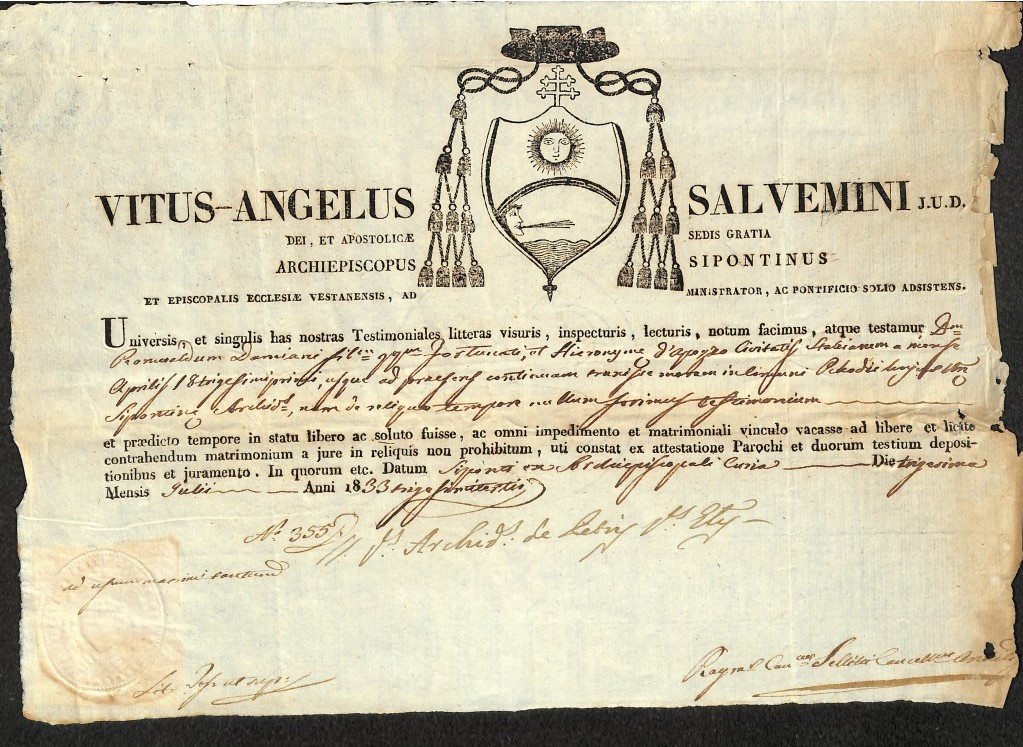 VITUS-ANGELUS SALVEMINI J.U.D.
DEI, ET APOSTOLICÆ SEDIS GRATIA
ARCHIEPISCOPUS SIPONTINUS
ET EPISCOPALIS ECCLESIÆ VESTANENSIS, ADMINISTRATOR, AC PONTIFICIO SOLIO ADSISTENS.
Universis, et singulis has nostras Testimoniales litteras visuris, inspecturis, lecturis, notum facimus, atque testamur
Romualdum Damiani Fortunati, et Hieronyme d'Apozzo Civitatis a mense
Aprilis 18 trigesimi primi, usque ad praesens continuam moram in
Sipontine Archid.s, nam de reliquo tempore nullum testimonium
et prædicto tempore in statu libero ac soluto fuisse, ac omni impedimento et matrimoniali vinculo vacasse ad libere et licite
contrahendum matrimonium a jure in reliquis non prohibitum, uti constat ex attestatione Parochi et duorum testium deposi-
tionibus et juramento. In quorum etc. Datum Siponti ex Archiepiscopali Curia Die trigesima
Mensis Julii Anni 1833 trigesimi tertii
N.º 355 Archid.s de
ad usum matrimonii